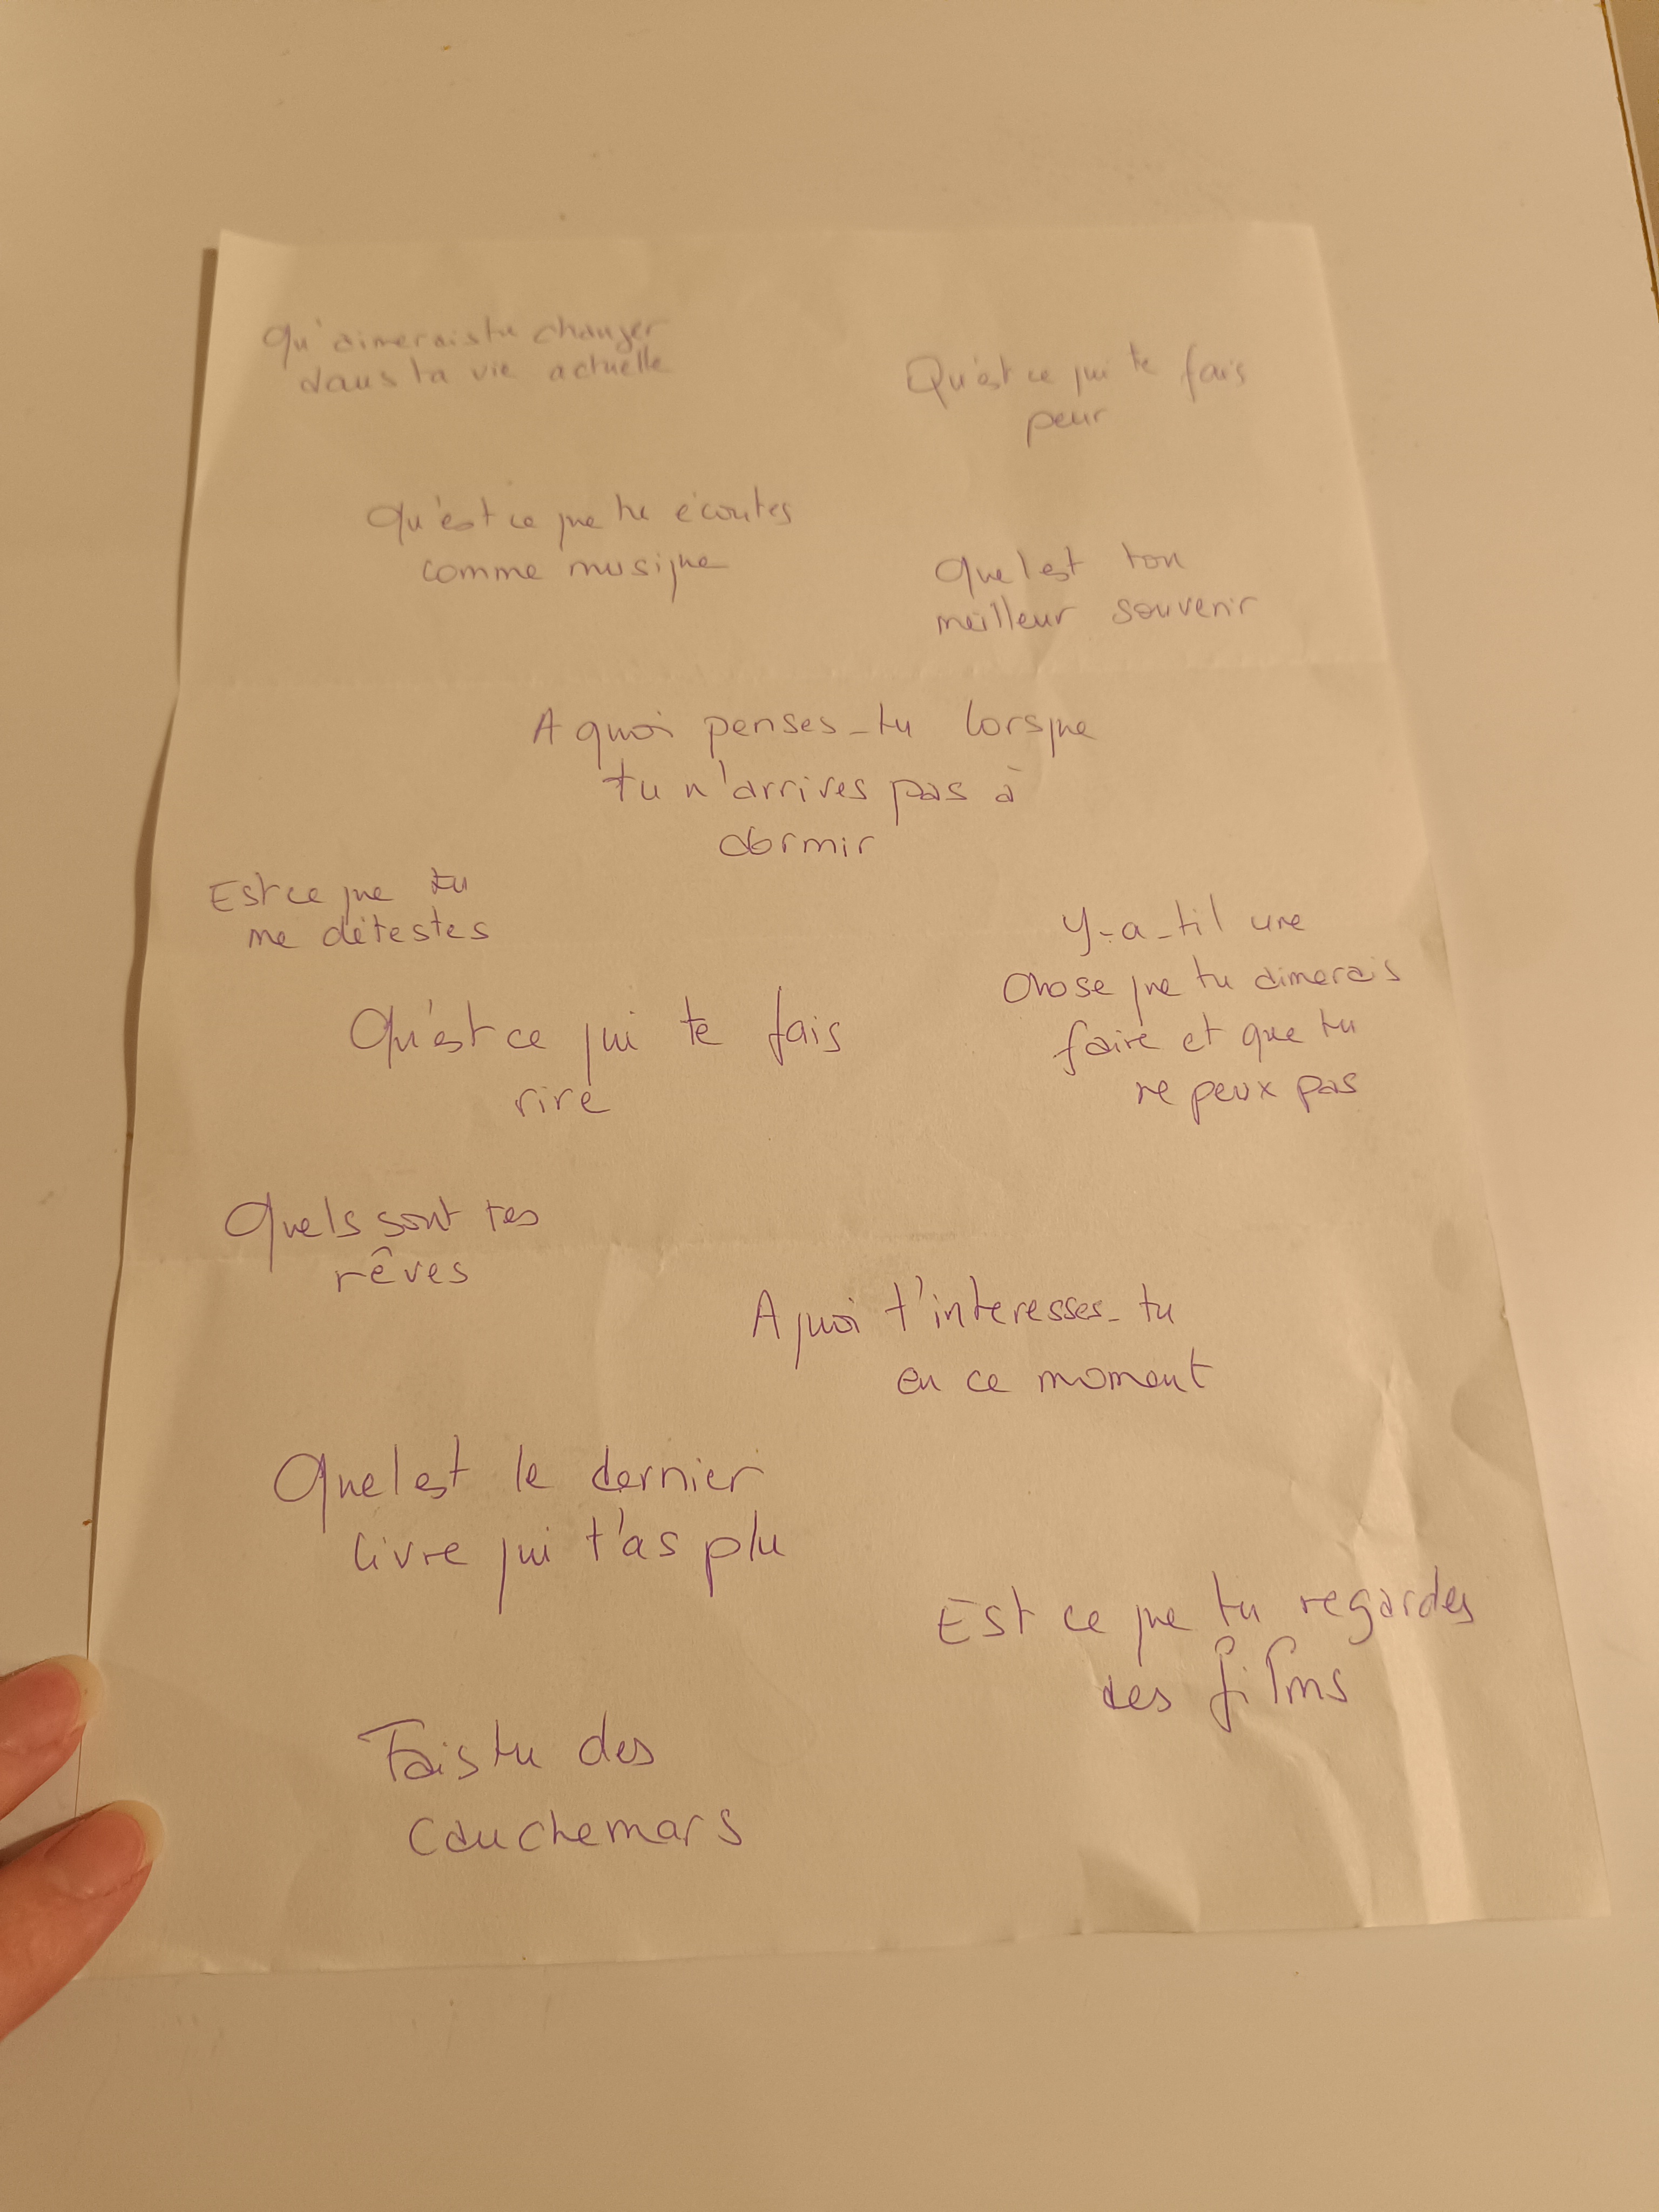 Qu'aimerais tu changer
dans ta vie actuelle
Qu'est ce qui te fais
peur
Qu'est ce que tu écoutes
comme musique
Quel est ton
meilleur souvenir
A quoi penses-tu lorsque
tu n'arrives pas à
dormir
Est ce que tu
me détestes
Y-a-til une
chose que tu aimerais
faire et que tu
ne peux pas
Qu'est ce qui te fais
rire
Quels sont tes
rêves
A quoi t'interesses-tu
en ce moment
Quel est le dernier
livre qui t'as plu
Est ce que tu regardes
des films
Fais tu des
cauchemars